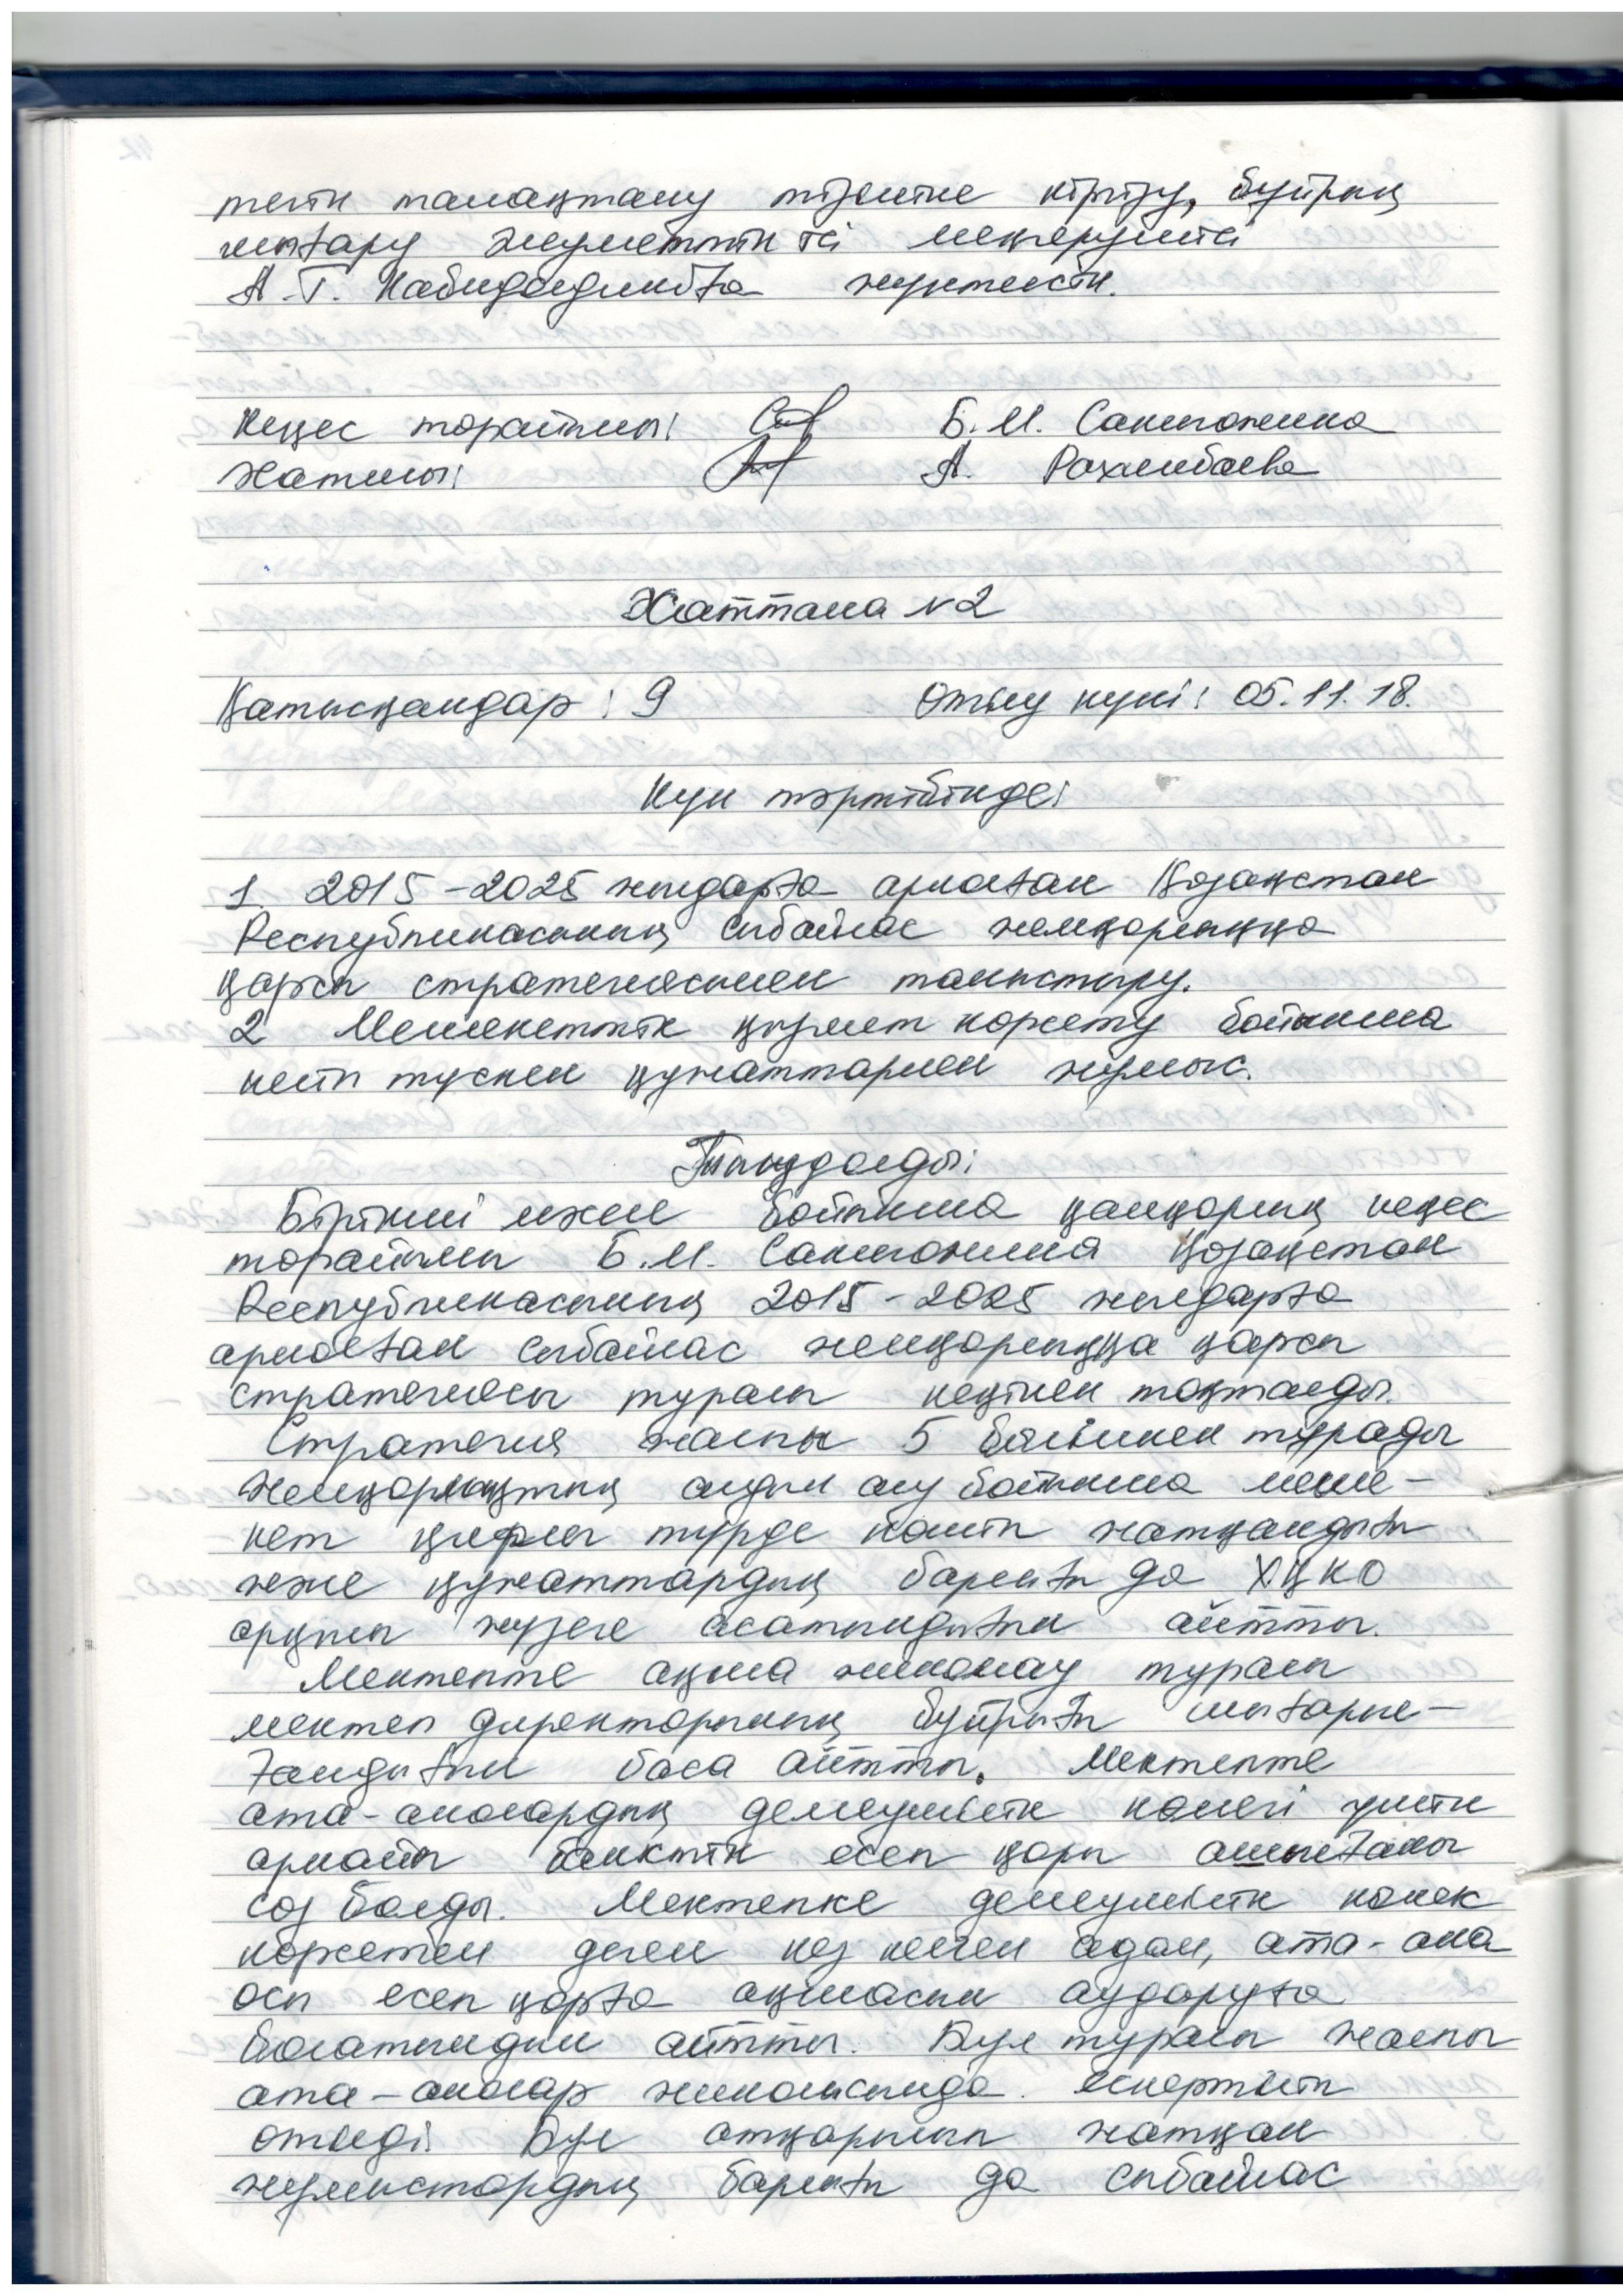 тегін тамақтану тізіміне кіргізу, бұйрық
шығару әлуметтік ісі меңгерушісі
А.Г. Набидолдинаға жүктелсін.
Кеңес төрайымы: Б.М. Сакигожина
Хатшы: А. Рахимбаева
Хаттама №2
Қатысқандар: 9 Өтілу күні: 05.11.18.
Күн тәртібінде:
1. 2015-2025 жылдарға арналған Қазақстан
Республикасының сыбайлас жемқорлыққа
қарсы стратегиясымен таныстыру.
2 Мемлекеттік қызмет көрсету бойынша
келіп түскен құжаттармен жұмыс.
Тыңдалды:
Бірінші мәселе бойынша қамқорлық кеңес
төрайымы Б.М. Сакигожина Қазақстан
Республикасының 2015-2025 жылдарға
арналған сыбайлас жемқорлыққа қарсы
стратегиясы туралы кеңінен тоқталды.
Стратегия жалпы 5 бөлімнен тұрады
Жемқорлықтың алдын алу бойынша мемле-
кет қызметі түрде көшіп жатқандығы
және құжаттардың барлығы да ХҚКО
арқылы жүзеге асатындығын айтты.
Мектепте ақша жинамау туралы
мектеп директорының бұйрығы шығарыл-
ғандығын баса айтты. Мектепте
ата-аналардың демеушілік көмегі үшін
арнайы банктік есеп қоры ашылғаны
сөз болды. Мектепке демеушілік көмек
көрсетем деген кез келген адам, ата-ана
осы есеп қорға ақшасын аударуға
болатындығын айтты. Бұл туралы жалпы
ата-аналар жиналысында ескертіліп
өтілді. Бұл атқарылып жатқан
жұмыстардың барлығы да сыбайлас